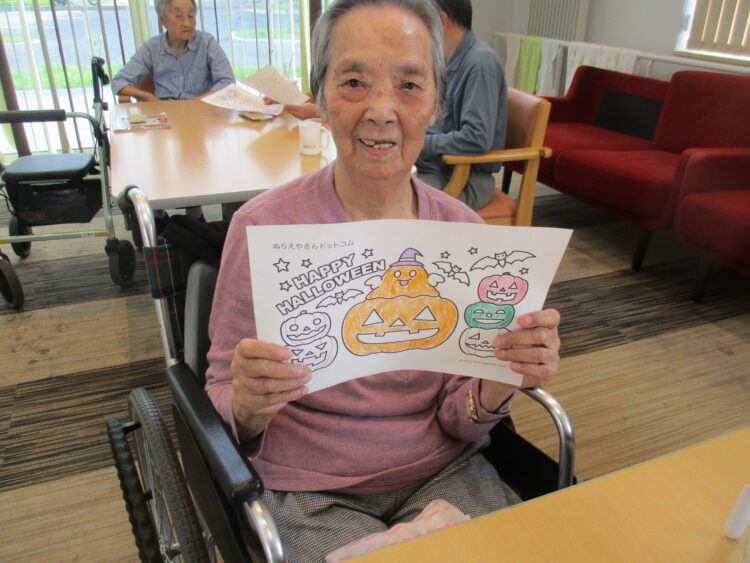 ぬりえやさんドットコム
HAPPY
HALLOWEEN